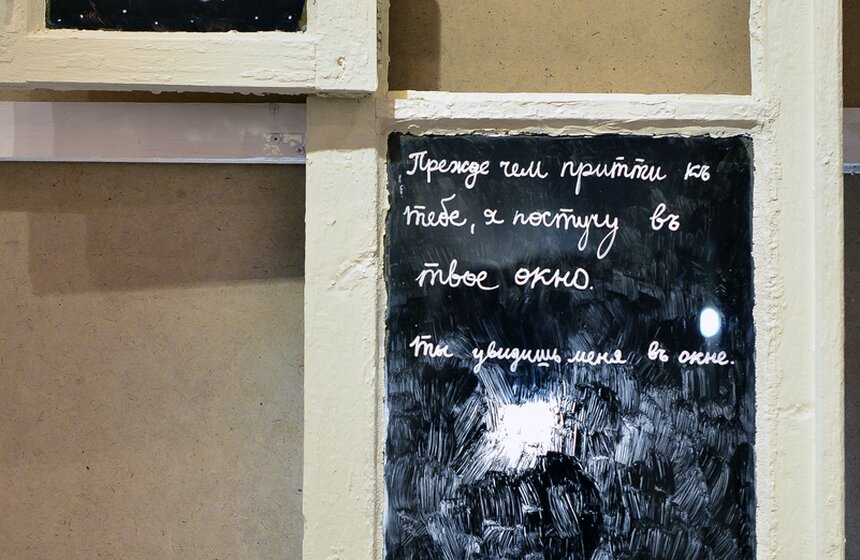 Прежде чем притти къ
тебе, я постучу въ
твое окно.
Ты увидишь меня въ окне.